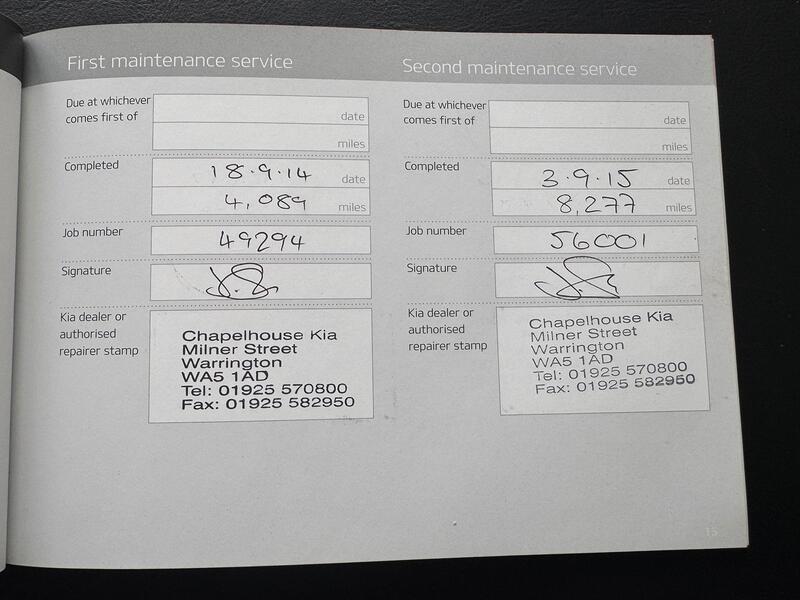 First maintenance service
Due at whichever
comes first of
date
miles
Completed
18.9.14 date
4,089 miles
Job number
49294
Signature
Kia dealer or
authorised
repairer stamp
Chapelhouse Kia
Milner Street
Warrington
WA5 1AD
Tel: 01925 570800
Fax: 01925 582950
Second maintenance service
Due at whichever
comes first of
date
miles
Completed
3.9.15 date
8,277 miles
Job number
56001
Signature
Kia dealer or
authorised
repairer stamp
Chapelhouse Kia
Milner Street
Warrington
WA5 1AD
Tel: 01925 570800
Fax: 01925 582950
15